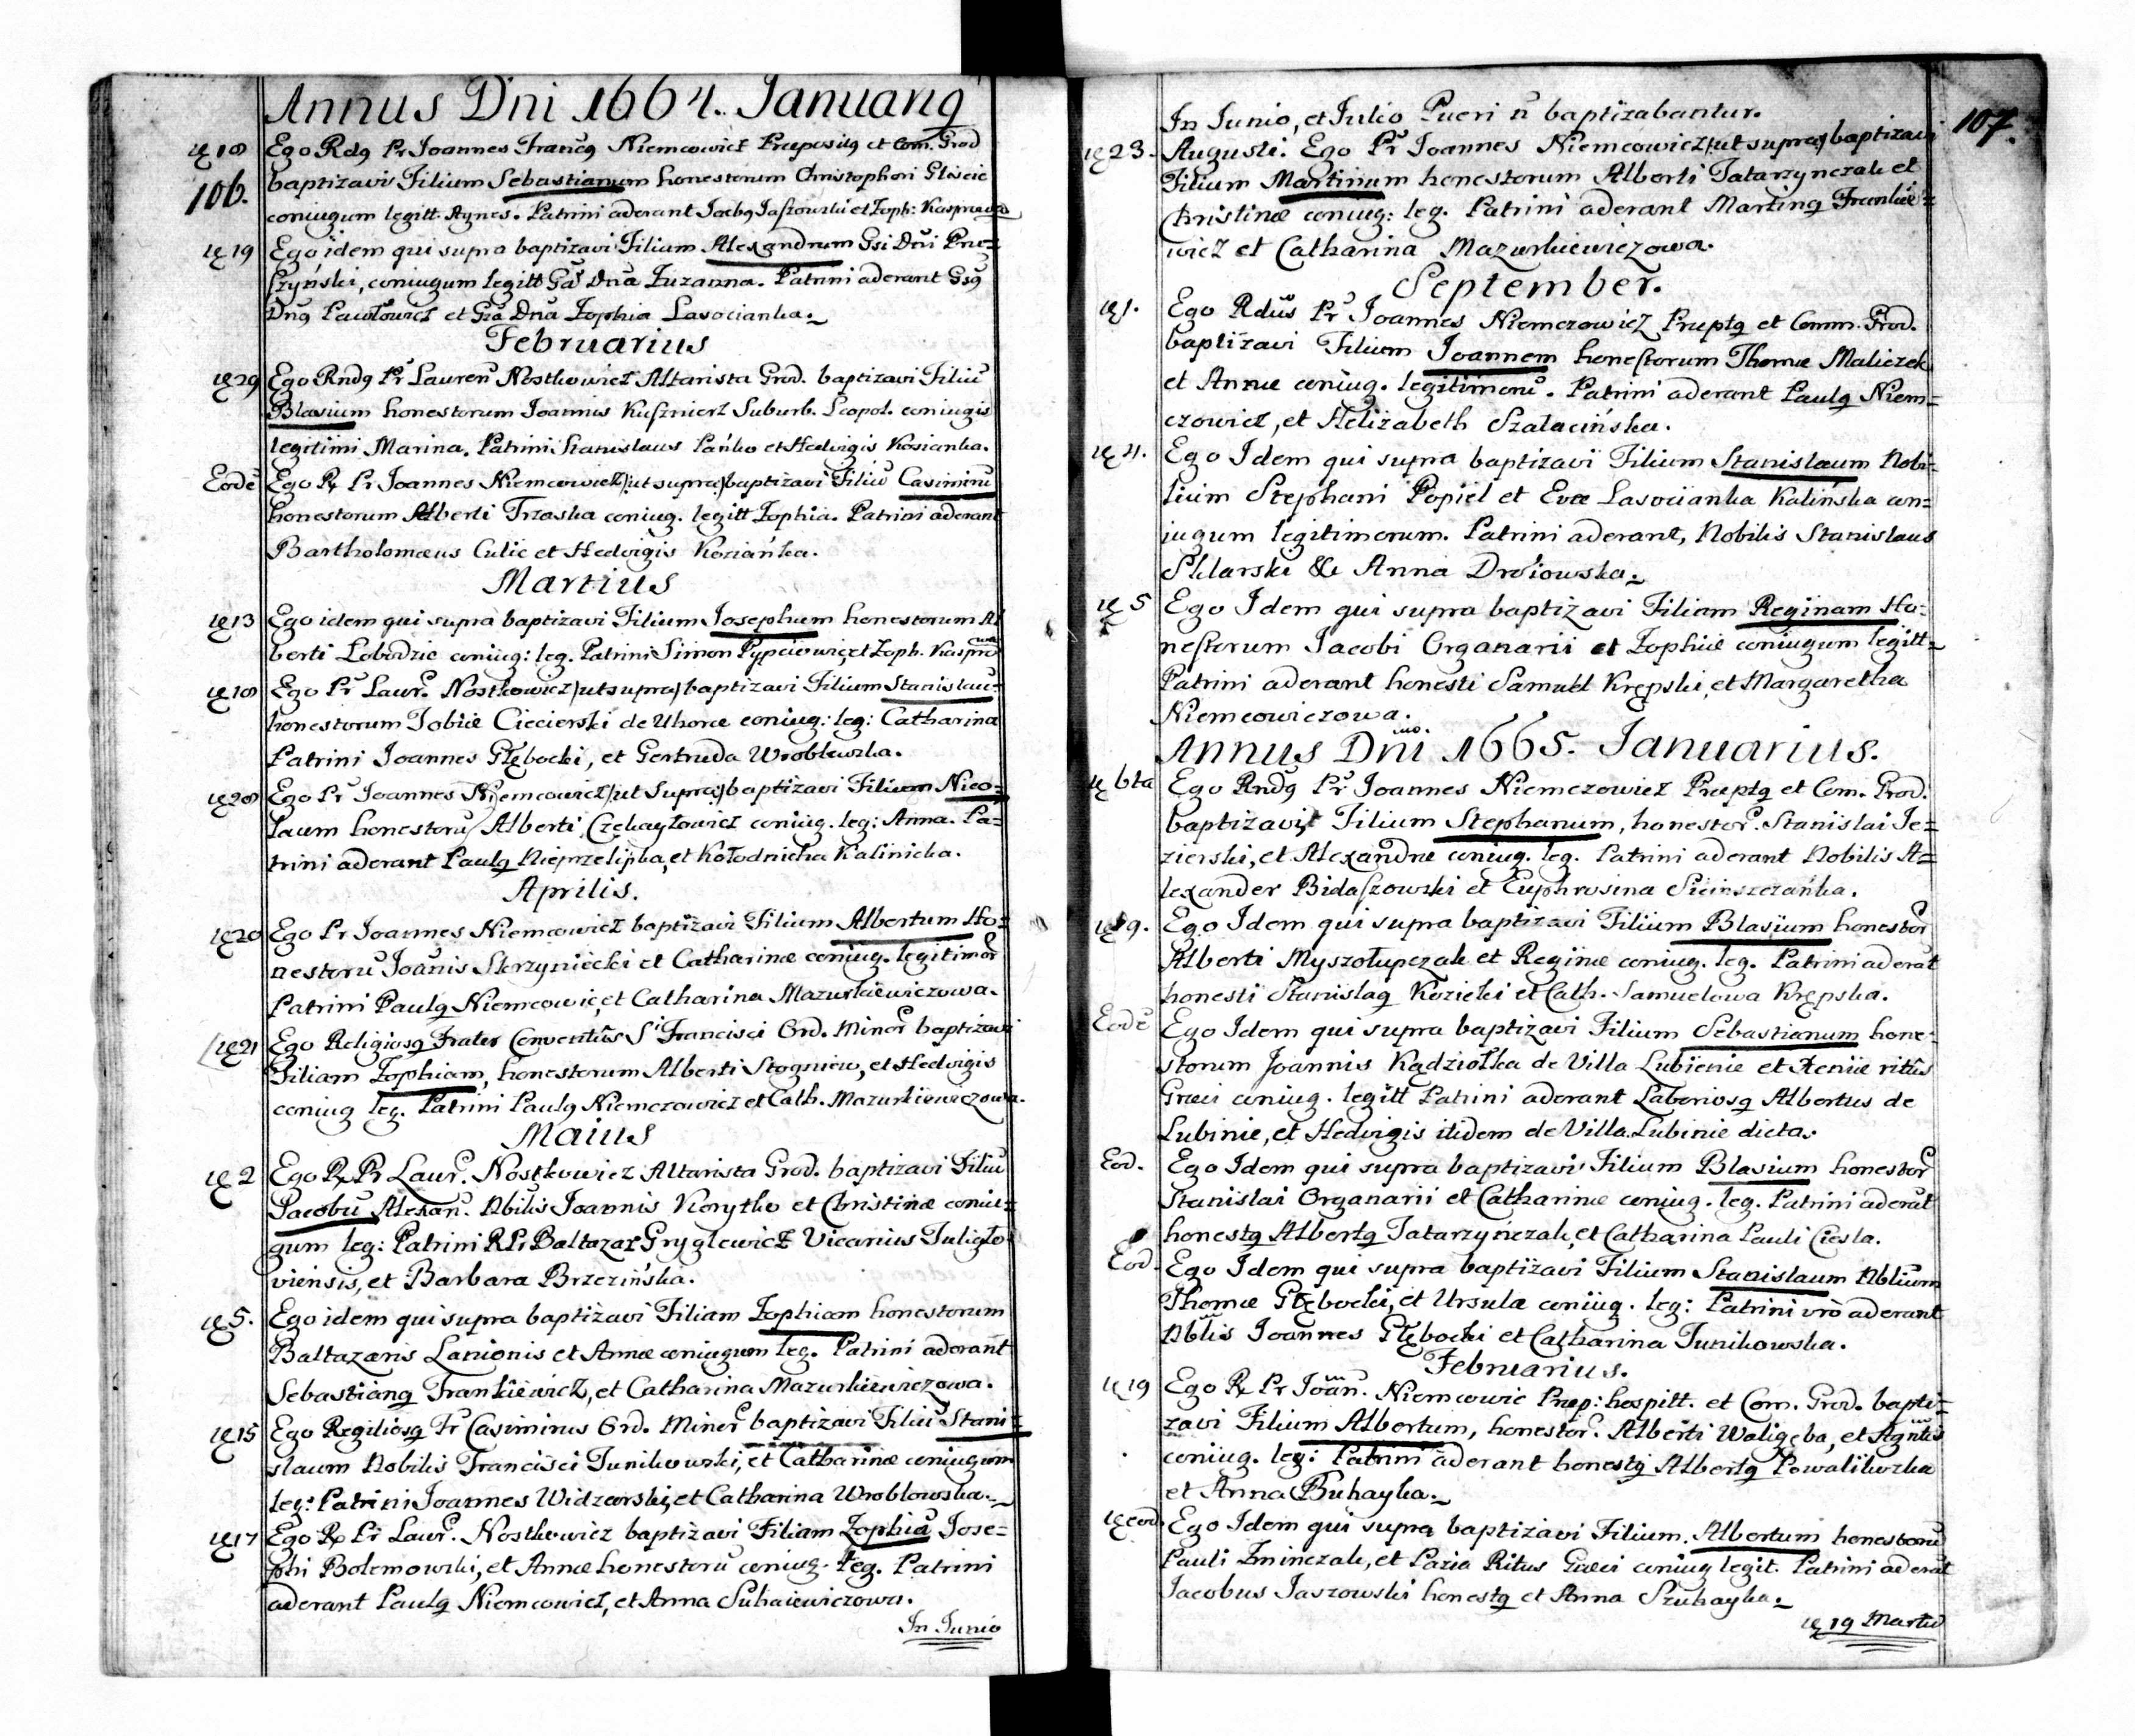 Annus Dni 1664. Januarig
Die 18 Ego Rdg Pr Joannes Francg Niemcowicz Præpositg et Com. Grod
106. baptizavi Filium Sebastianum honestorum Christophori Gliscic
coniugum legitt. Agnes. Patrini aderant Jacbg Jaszowski et Zoph: Kasprowa
Die 19 Ego idem qui supra baptizavi Filium Alexandrum Gsi Dni Pru=
szyński, coniugum legitt Ga Dna Zuzanna. Patrini aderant Gsg
Dng Pawłowicz et Gza Dna Zophia Lasocianka.
Februarius
Die 29 Ego Rndg Pr Lauren Nostkowicz Altarista Grod. baptizavi Filiu
Blasium honestorum Joannis Kusznierz Suburb. Leopol. coniugis
legitimi Marina. Patrini Stanislaus Pańko et Hedvigis Kosianka.
Eode Ego R Pr Joannes Niemcowicz /:ut supra:/ baptizavi Filiu Casimiru
honestorum Alberti Trzaska coniug. legitt Zophia. Patrini aderant
Bartholomæus Culic et Hedvigis Koziańka.
Martius
Die 13 Ego idem qui supra baptizavi Filium Josephum honestorum Al
berti Lobodzic coniug: leg. Patrini Simon Pypciowic, et Zoph. Kasprowa
Die 18 Ego Pr Laur. Nostkowicz /ut supra/ baptizavi Filium Stanislau=
honestorum Tobiæ Ciecierski de Uhorce coniug: leg: Catharina
Patrini Joannes Głębocki, et Gertruda Wroblewska.
Die 28 Ego Pr Joannes Niemcowicz /ut Supra:/ baptizavi Filium Nico=
laum honestoru Alberti Czekayłowicz coniug. leg: Anna. Pa=
trini aderant Paulg Nieprzelipka, et Kołodnicka Kalinicka.
Aprilis.
Die 20 Ego Pr Joannes Niemcowicz baptizavi Filium Albertum Ho=
nestoru Joanis Skrzyniecki et Catharinæ coniug. legitimor
Patrini Paulg Niemcowic, et Catharina Mazurkiewiczowa.
Die 21 Ego Religiosg Frater Conventus S. Francisci Ord. Minor baptizavi
Filiam Zophiam, honestorum Alberti Stogniew, et Hedvigis
coniug leg. Patrini Paulg Niemczowicz et Cath. Mazurkiewiczowa.
Maius
Die 2 Ego R Pr Laur. Nostkowicz Altarista Grod. baptizavi Filiu
Jacobu Alexan. Nbilis Joannis Korytko et Christinæ coniu=
gum leg: Patrini R Pr Baltazar Gryglewicz Vicarius Tuligło=
viensis, et Barbara Brzezińska.
Die 5. Ego idem qui supra baptizavi Filiam Zophiam honestorum
Baltazaris Lanionis et Annæ coniugum leg. Patrini aderant
Sebastiang Frankiewicz, et Catharina Mazurkiewiczowa.
Die 15 Ego Regiliosg Fr Casimirus Ord. Minor baptizavi Filiu Stani=
slaum Nobilis Francisci Tunikowski, et Catharinæ coniugum
leg: Patrini Joannes Widzewski, et Catharina Wroblowska.
Die 17 Ego R Pr Laur. Nostkowicz baptizavi Filiam Zophia Jose=
phi Bolemowski, et Annæ honestoru coniug. leg. Patrini
aderant Paulg Niemcowicz, et Anna Suhaiewiczowa.
In Junio
In Junio, et Julio Pueri n baptizabantur. 107.
Die 23. Augusti. Ego Pr Joannes Niemcowicz /:ut supra:/ baptizavi
Filium Martinum honestorum Alberti Tatarzynczak et
Christinæ coniug: leg. Patrini aderant Marting Frankie=
wicz et Catharina Mazurkiewiczowa.
September.
Die 1. Ego Rdus Pr Joannes Niemczowicz Præptg et Comm. Grod.
baptizavi Filium Joannem honestorum Thomæ Maliczek
et Annæ coniug. legitimoru. Patrini aderant Paulg Niem=
czowicz, et Helizabeth Szałacińska.
Die 4. Ego Idem qui supra baptizavi Filium Stanislaum Nobi=
lium Stephani Popiel et Evæ Lasocianka Kalińska con=
iugum legitimorum. Patrini aderant, Nobilis Stanislaus
Sklarski & Anna Droiowska.
Die 5 Ego Idem qui supra baptizavi Filiam Reginam Ho=
nestorum Jacobi Organarii et Zophiæ coniugum legitt=
Patrini aderant honesti Samuel Krępski, et Margaretha
Niemcowiczowa.
Annus Dni 1665. Januarius.
Die 6ta Ego Rndg Pr Joannes Niemczowicz Præptg et Com. Grod.
baptizavit Filium Stephanum, honestor. Stanislai Je=
zierski, et Alexandræ coniug. leg. Patrini aderant Nobilis A=
lexander Bidaszowski et Euphrosina Sieinszczańka.
Die 19. Ego Idem qui supra baptizavi Filium Blasium honestor
Alberti Myszołupczak et Reginæ coniug. leg. Patrini aderat
honesti Stanislag Kozicki et Cath. Samuelowa Krępska.
Eode Ego Idem qui supra baptizavi Filium Sebastianum hone=
storum Joannis Kądziołka de Villa Lubienie et Xeniæ ritus
Græci coniug. legitt Patrini aderant Laboriosg Albertus de
Lubinie, et Hedvigis itidem de Villa Lubinie dicta.
Eod. Ego Idem qui supra baptizavi Filium Blasium honestor
Stanislai Organarii et Catharinæ coniug. leg. Patrini aderat
honestg Albertg Tatarzyńczak, et Catharina Pauli Ciesla.
Eod. Ego Idem qui supra baptizavi Filium Stanislaum Nblium
Thomæ Głębocki, et Ursulæ coniug. leg: Patrini vro aderant
Nblis Joannes Głębocki et Catharina Tunikowska.
Februarius.
Die 19 Ego R Pr Joan. Niemcowic Præp: hospitt. et Com. Grod. bapti=
zavi Filium Albertum, honestor. Alberti Waligęba, et Agntis
coniug. leg: Patrini aderant honestg Albertg Powalikozka
et Anna Buhayka.
Die eod. Ego Idem qui supra baptizavi Filium. Albertum honestoru
Pauli Zminczak, et Pazia Ritus Græci coniug legit. Patrini aderat
Jacobus Jaszowski honestg et Anna Szuhayka.
Die 19 Martii